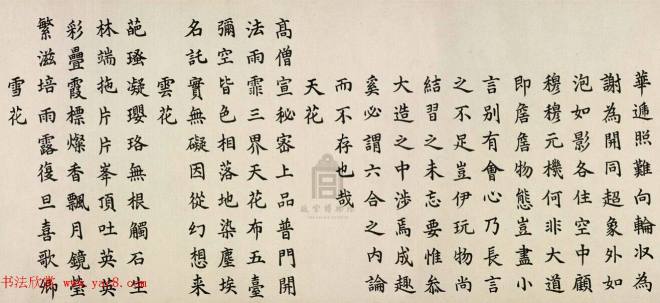 華遞飛難向輪㳙為
謝為開同超象外如
泡如影各住空中顧
穆穆元機何非大道
即詹詹物態豈盡小
言別有會心乃長言
之不足豈伊玩物尚
結習之未忘要惟叅
大造之中涉焉成趣
奚必謂六合之內論
而不存也哉
天花
高僧宣秘密上品普門開
法雨霏三界天花布五臺
彌空皆色相落地染塵埃
名託實無礙因從幻想来
雲花
葩瑵凝瓔珞無根觸石生
林端拖片片峯頂吐英英
彩疊霞標燦香飄月鏡瑩
繁滋培雨露復旦喜歌卿
雪花
故宮博物院
书法欣赏 www.yac8.com